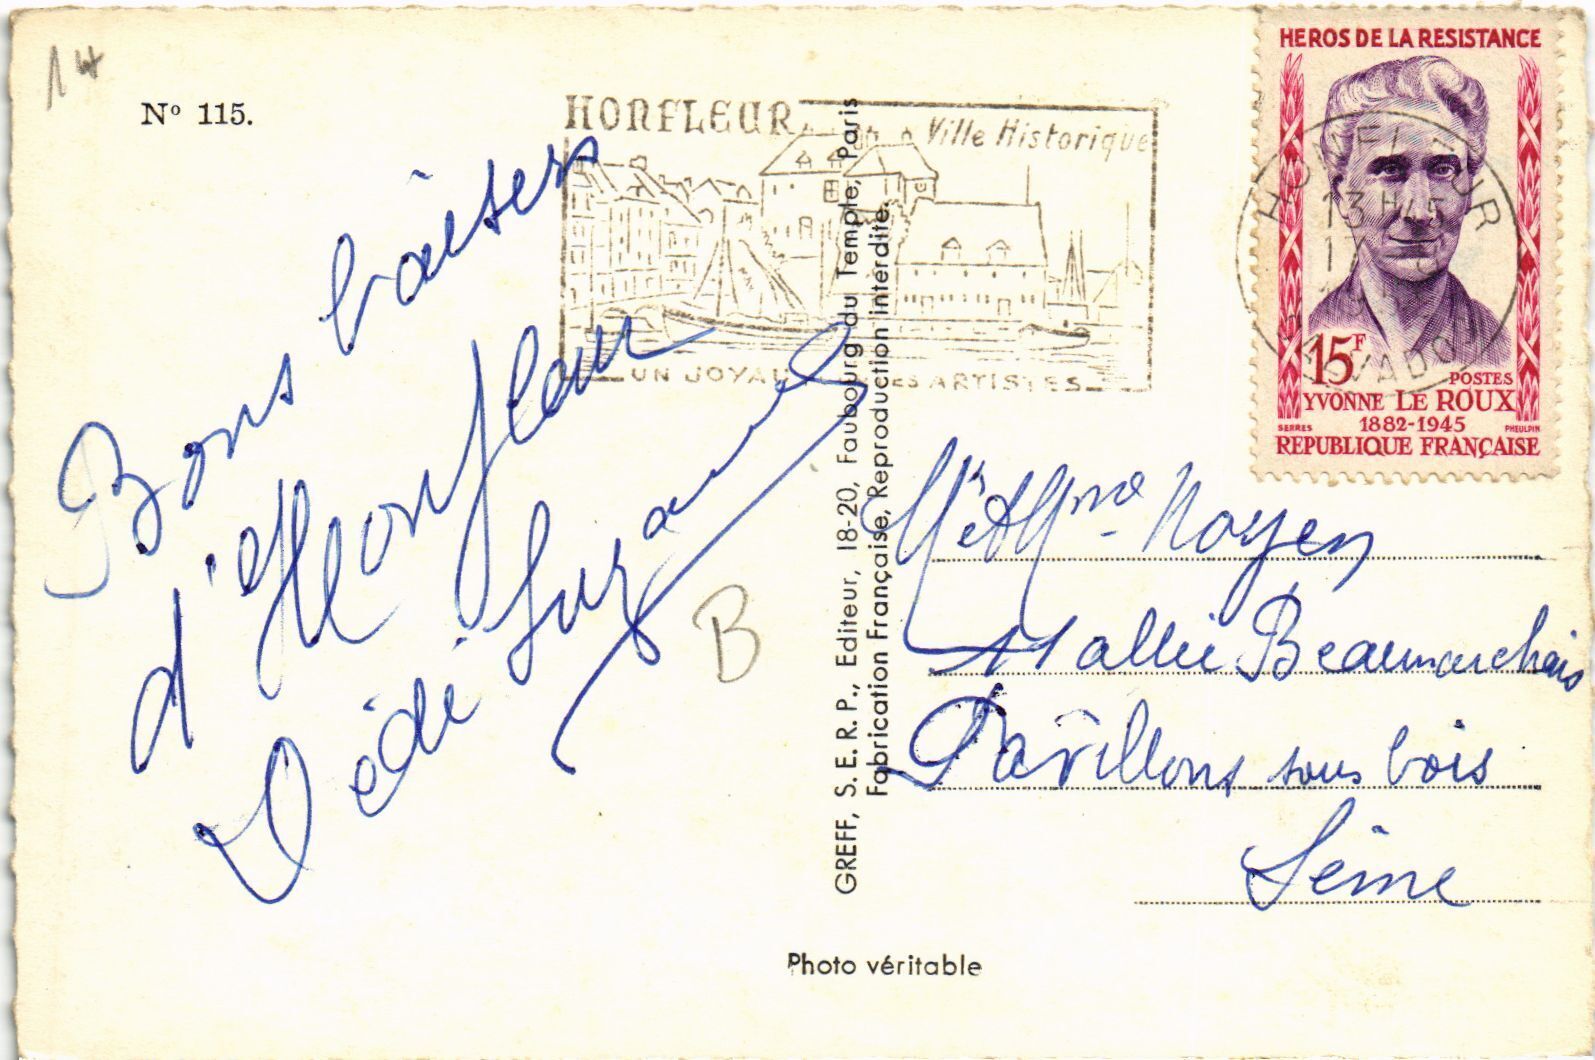 14
Nº 115.
HONFLEUR
Ville Historique
UN JOYAU
ES ARTISTES
HEROS DE LA RESISTANCE
HONFLEUR
13 H 45
17
CALVADOS
15F
POSTES
YVONNE LE ROUX
SERRES
1882-1945
PHEULPIN
REPUBLIQUE FRANÇAISE
Bons baisers
d'Honfleur
Dédé Suzanne
B
GREFF, S. E. R. P., Editeur, 18-20, Faubourg du Temple, Paris
Fabrication Française, Reproduction interdite.
Mr et Mme Noyen
11 allée Beaumarchais
Pavillons sous bois
Seine
Photo véritable